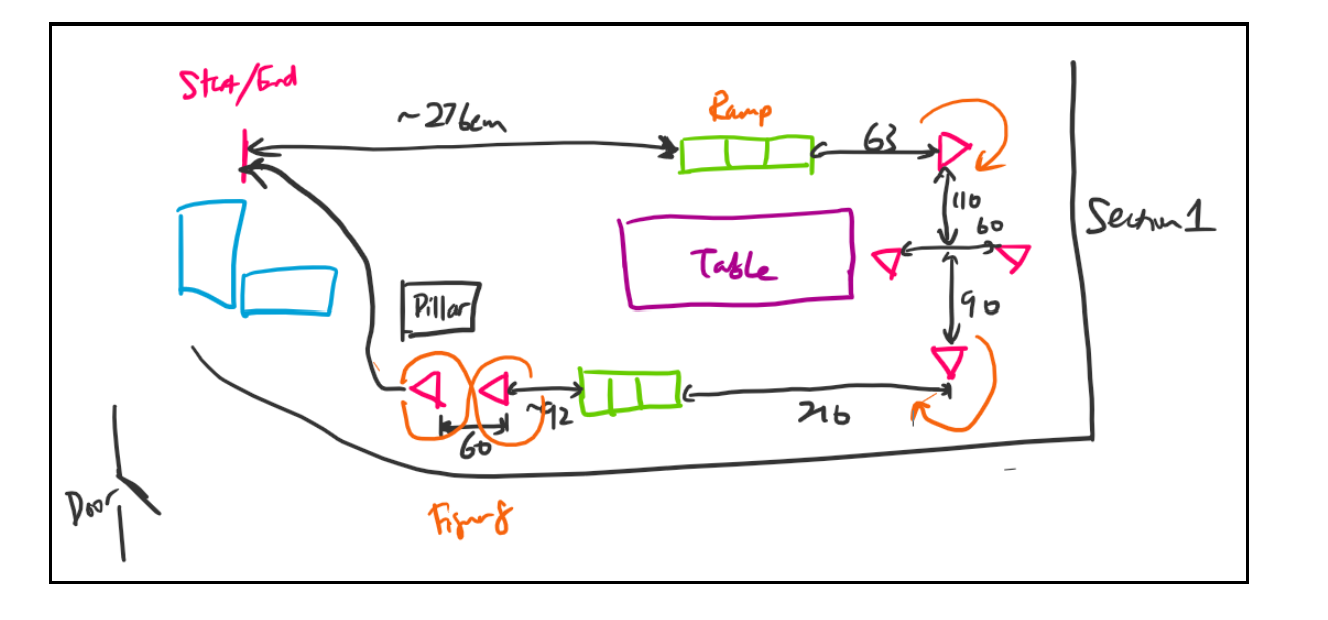 Start/End
~276cm
Ramp
63
110
60
Section 1
Table
90
Pillar
~92
216
60
Door
Figure 8